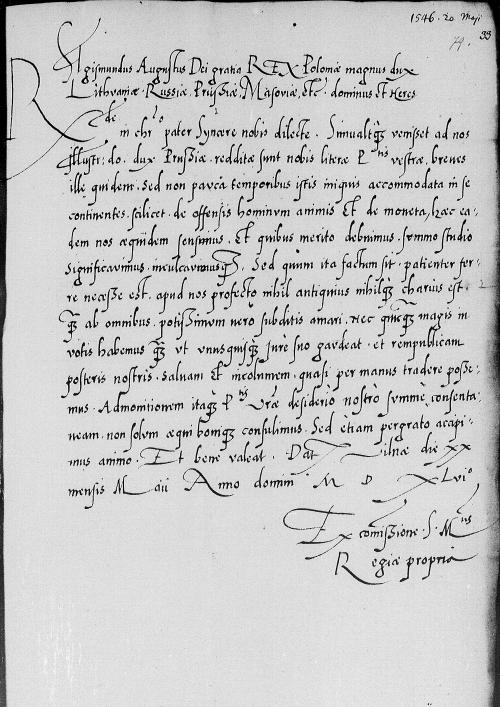 1546. 20 Maji
33
74.
Sigismundus Augustus Dei gratia REX Poloniæ magnus dux
Lithvaniæ Russiæ, Prussiæ, Masoviæ, Etc. dominus et Heres
Rde
in chro pater Syncere nobis dilecte. Simulatque venisset ad nos
Illustr: do. dux Prussiæ. redditæ sunt nobis literæ P tis vestræ, breves
ille quidem. Sed non pauca temporibus istis iniquis accommodata in se
continentes. scilicet. de offensis hominum animis Et de moneta, hæc ea,
dem nos æquidem sensimus. Et quibus merito debuimus. summo studio
significavimus. inculcavimusque. Sed quum ita factum sit. patienter fer,
re necesse est. apud nos profecto nihil antiquius nihilque charius est.
que ab omnibus. potissimum vero subditis amari. Nec quicque magis in
votis habemus que ut unusquisque jure suo gaudeat. et rempublicam
posteris nostris. salvam Et incolumem. quasi per manus tradere posse,
mus. Admonitionem itaque P tis Vræ desiderio nostro summe consenta,
neam. non solum æqui bonique consulimus. Sed etiam pergrato accipi,
mus animo. Et bene valeat. Dat Vilnæ die XX
mensis Maii Anno domini M D XLVIo
Ex comissione S. M tis
Regiæ propria